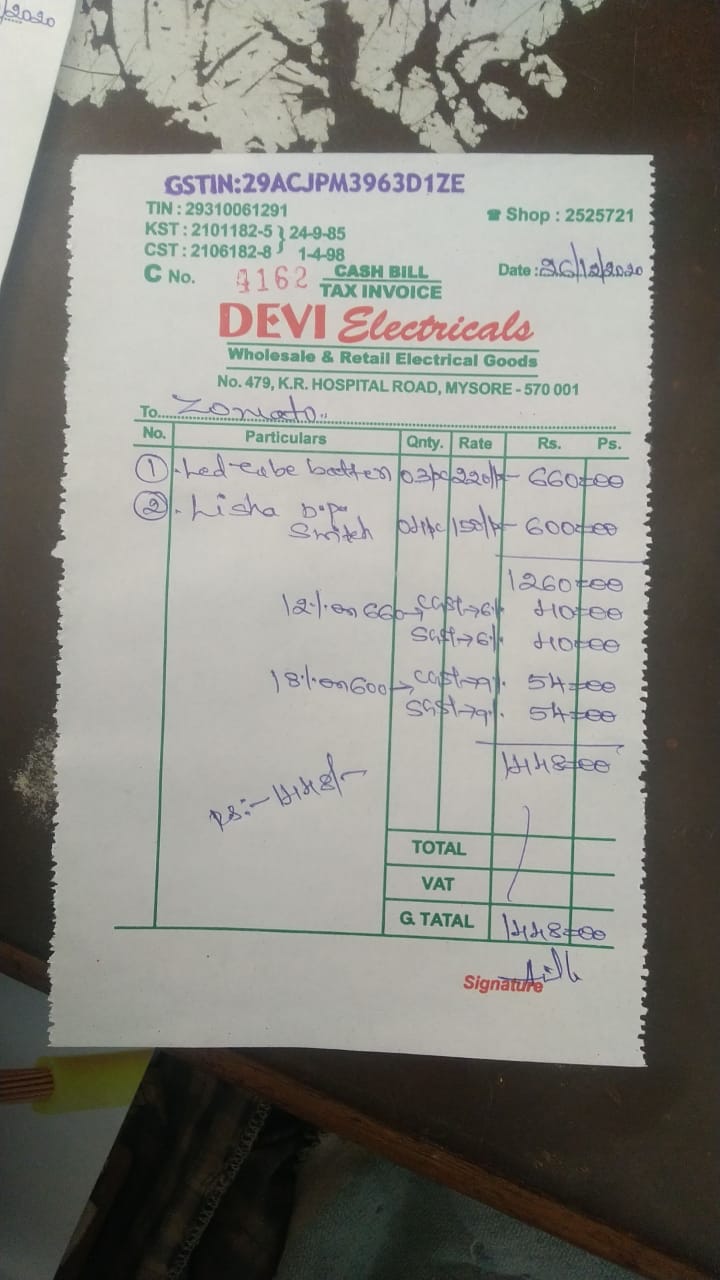 /2020
GSTIN:29ACJPM3963D1ZE
TIN : 29310061291
☎ Shop : 2525721
KST : 2101182-5 } 24-9-85
CST : 2106182-8 } 1-4-98
C No. 4162 CASH BILL
TAX INVOICE
Date : 26/12/2020
DEVI Electricals
Wholesale & Retail Electrical Goods
No. 479, K.R. HOSPITAL ROAD, MYSORE - 570 001
To Zomato
No. Particulars Qnty. Rate Rs. Ps.
① Led tube batten 03pc 220/- 660=00
② Lisha D.P.
Switch 04pc 150/- 600=00
1260=00
12% on 660 → CGST→6% 40=00
SGST→6% 40=00
18% on 600 → CGST→9% 54=00
SGST→9% 54=00
1448=00
Rs:- 1448/-
TOTAL
VAT
G. TATAL 1448=00
Signature